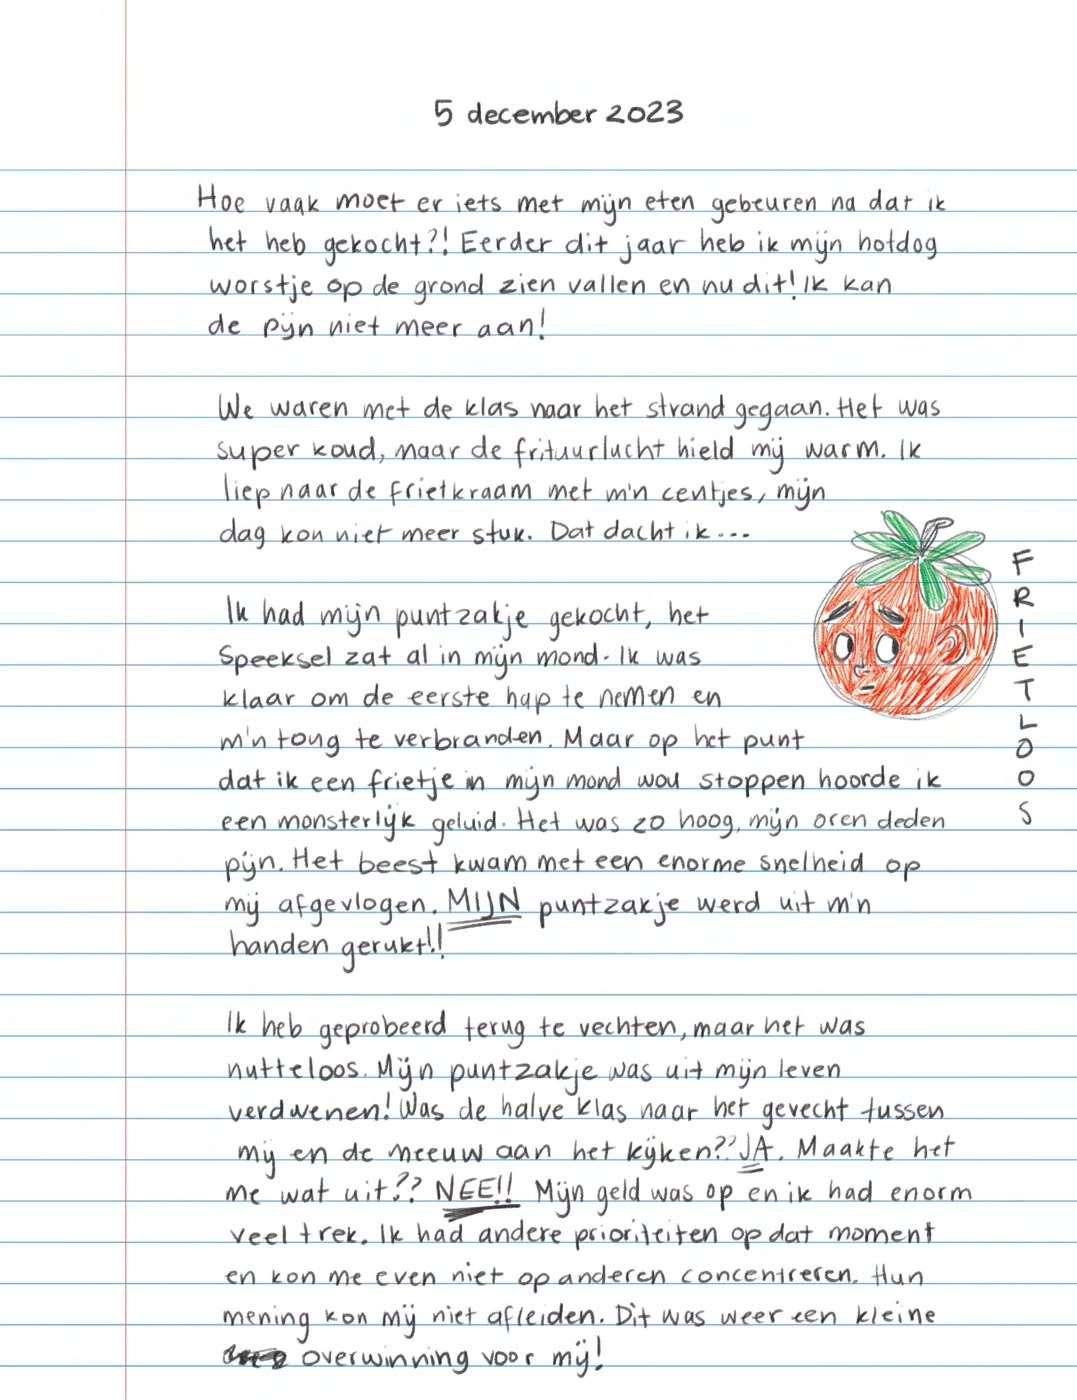 5 december 2023
Hoe vaak moet er iets met mijn eten gebeuren na dat ik
het heb gekocht?! Eerder dit jaar heb ik mijn hotdog
worstje op de grond zien vallen en nu dit! Ik kan
de pijn niet meer aan!
We waren met de klas naar het strand gegaan. Het was
super koud, maar de frituurlucht hield mij warm. Ik
liep naar de frietkraam met m'n centjes, mijn
dag kon niet meer stuk. Dat dacht ik...
Ik had mijn puntzakje gekocht, het
speeksel zat al in mijn mond. Ik was
klaar om de eerste hap te nemen en
m'n tong te verbranden. Maar op het punt
dat ik een frietje in mijn mond wou stoppen hoorde ik
een monsterlijk geluid. Het was zo hoog, mijn oren deden
pijn. Het beest kwam met een enorme snelheid op
mij afgevlogen. MIJN puntzakje werd uit m'n
handen gerukt!!
FRIETLOOS
Ik heb geprobeerd terug te vechten, maar het was
nutteloos. Mijn puntzakje was uit mijn leven
verdwenen! Was de halve klas naar het gevecht tussen
mij en de meeuw aan het kijken?? JA. Maakte het
me wat uit?? NEE!! Mijn geld was op en ik had enorm
veel trek. Ik had andere prioriteiten op dat moment
en kon me even niet op anderen concentreren. Hun
mening kon mij niet afleiden. Dit was weer een kleine
overwinning voor mij!